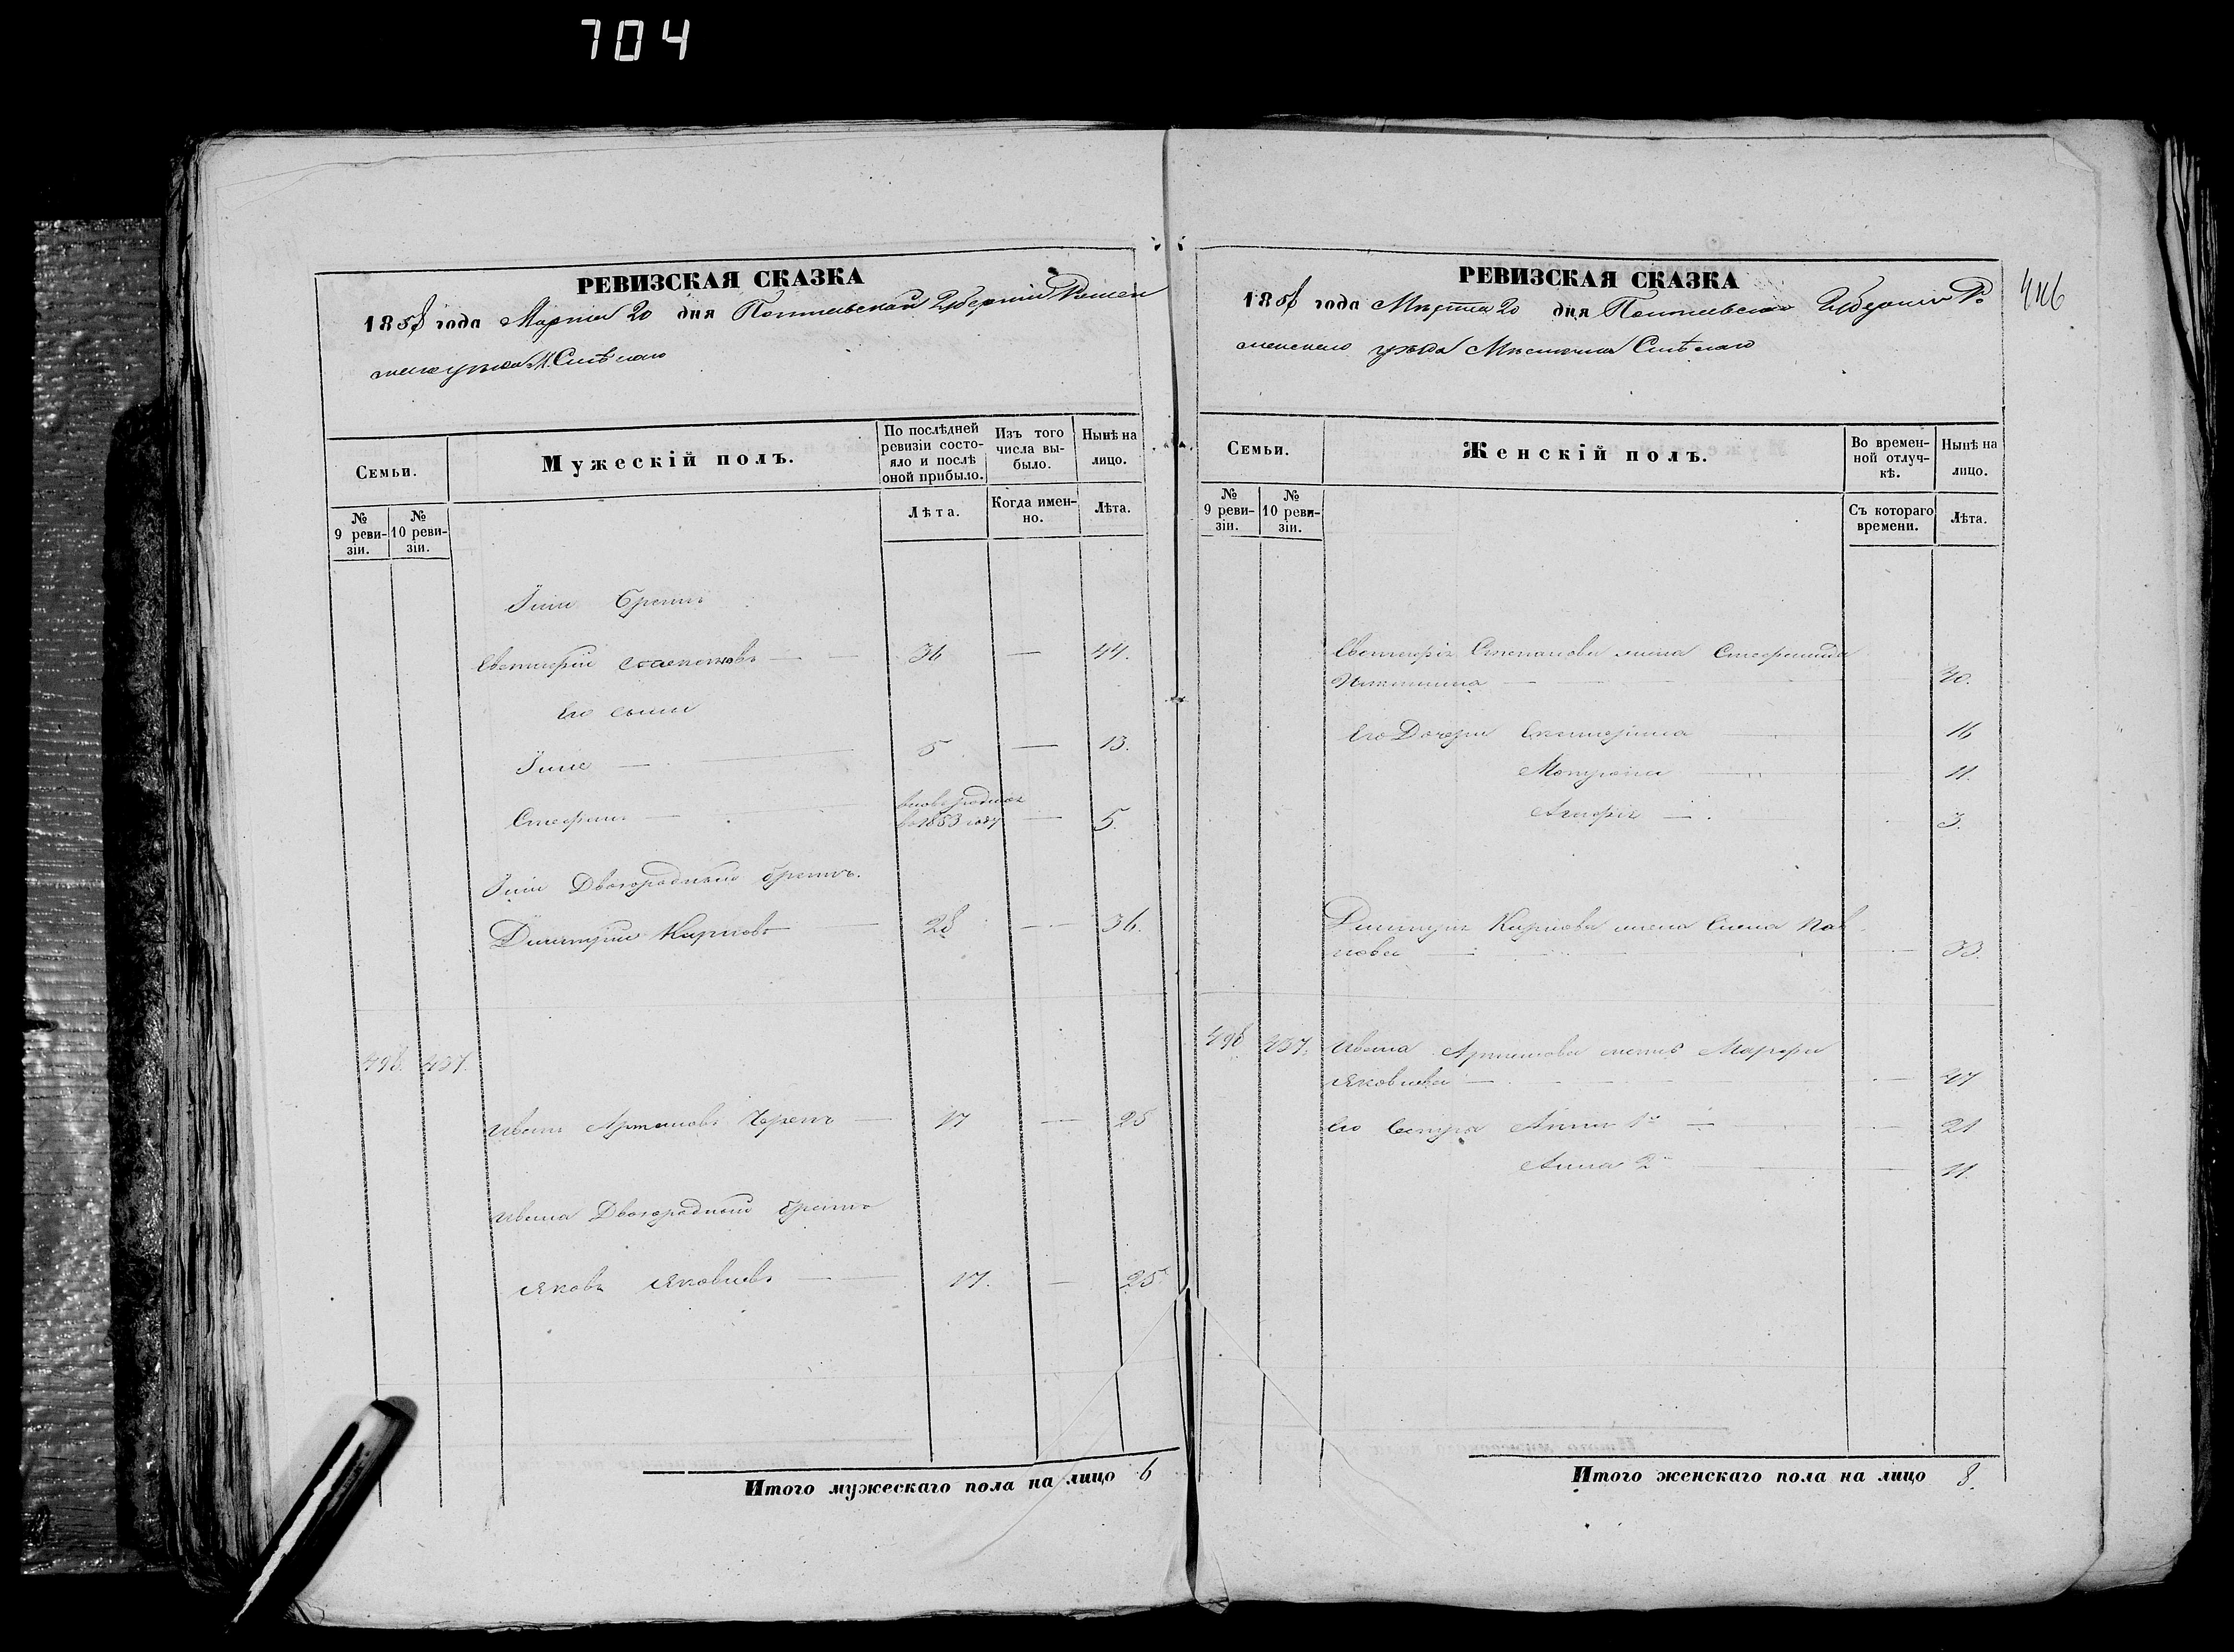 704
РЕВИЗСКАЯ СКАЗКА
1858 года Марта 20 дня Полтавской Губерніи Ромен
скаго уѣзда М. Смѣлаго
Семьи.
Мужескій полъ.
По послѣдней ревизіи состояло и послѣ оной прибыло.
Изъ того числа выбыло.
Нынѣ на лицо.
№ 9 ревизіи.
№ 10 ревизіи.
Лѣта.
Когда именно.
Лѣта.
братъ
Евстафій Степановъ — 36 — 44.
Его сыны
5 — 13.
Стефанъ — вновь родился въ 1853 году — 5.
Двоюродный братъ.
Димитрій Карповъ — 28 — 36.
498. 437.
Иванъ Артемовъ — 17 — 25
Ивана Двоюродный братъ
Яковъ Яковлевъ — 17. — 25.
Итого мужескаго пола на лицо 6
РЕВИЗСКАЯ СКАЗКА
446
1858 года Марта 20 дня Полтавской Губерніи Ро
менскаго уѣзда Мѣстечка Смѣлаго
Семьи.
Женскій полъ.
Во временной отлучкѣ.
Нынѣ на лицо.
№ 9 ревизіи.
№ 10 ревизіи.
Съ котораго времени.
Лѣта.
Степанова жена
40.
Его Дочери Екатерина — 16
Мотрона — 11.
3.
Димитрія Карпова жена Елена Пав
лова — 33.
498. 437. Ивана Артемова жена Марфа
Яковлева — 27
Его Сестра Анна 1я — 21
Анна 2я — 11.
Итого женскаго пола на лицо 8.